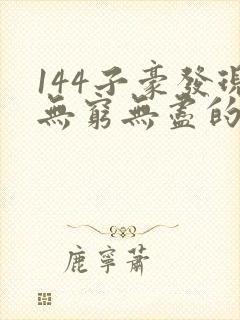 144子豪發現
無窮無盡的
鹿寧蕭